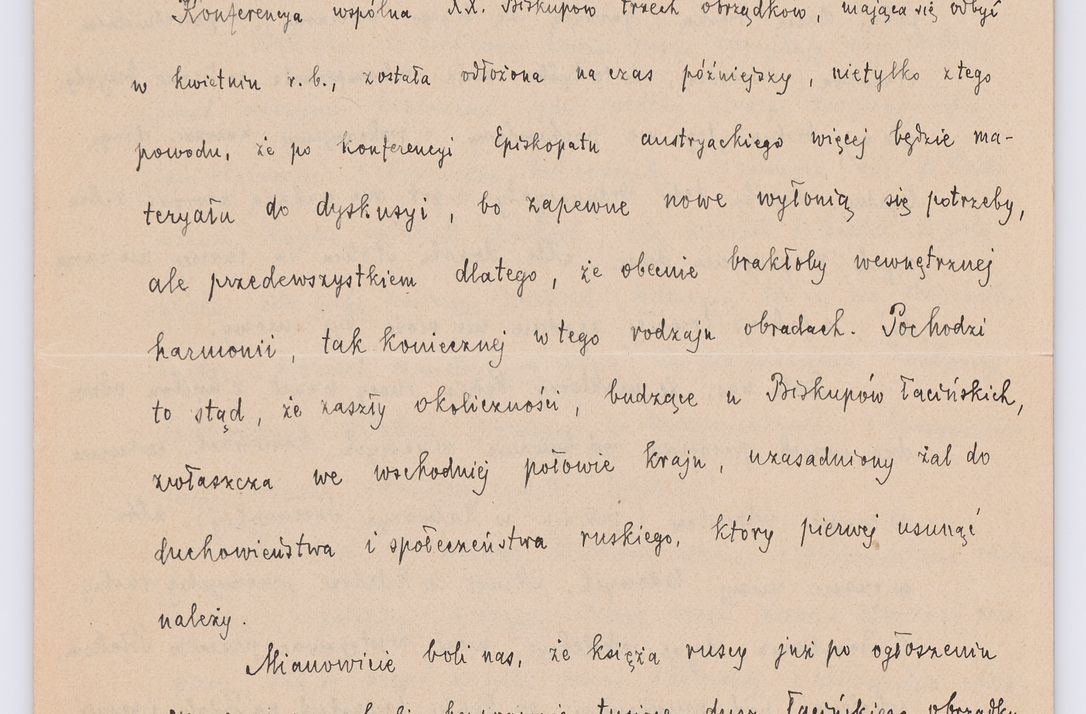 Konferencya wspólna XX. Biskupów trzech obrządków, mająca się odbyć
w kwietniu r. b., została odłożona na czas późniejszy, nietylko z tego
powodu, że po konferencyi Episkopatu austryackiego więcej będzie ma-
teryału do dyskusyi, bo zapewne nowe wyłonią się potrzeby,
ale przedewszystkiem dlatego, że obecnie brakłoby wewnętrznej
harmonii, tak koniecznej w tego rodzaju obradach. Pochodzi
to stąd, że zaszły okoliczności, budzące u Biskupów łacińskich,
zwłaszcza we wschodniej połowie kraju, uzasadniony żal do
duchowieństwa i społeczeństwa ruskiego, który pierwej usunąć
należy.
Mianowicie boli nas, że księża ruscy już po ogłoszeniu
tysiące dusz łacińskiego obrządku